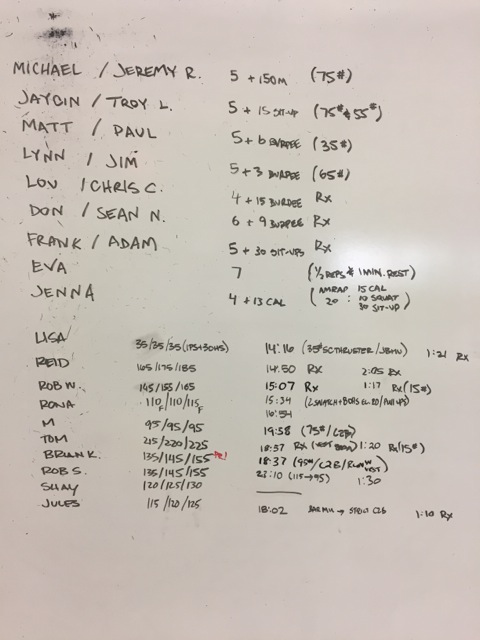 MICHAEL / JEREMY R. 5 + 150M (75#)
JAYCIN / TROY L. 5 + 15 SIT-UP (75# & 55#)
MATT / PAUL 5 + 6 BURPEE (35#)
LYNN / JIM 5 + 3 BURPEE (65#)
LOU / CHRIS C. 4 + 15 BURPEE Rx
DON / SEAN N. 6 + 9 BURPEE Rx
FRANK / ADAM 5 + 30 SIT-UPS Rx
EVA 7 (1/2 REPS & 1 MIN. REST)
JENNA 4 + 13 CAL (AMRAP 20 : 15 CAL 10 SQUAT 30 SIT-UP)
LISA 35/35/35 14:16 1:21 Rx
REID 165/175/185 14:50 Rx 2:05 Rx
ROB W. 145/155/165 15:07 Rx 1:17 Rx (15#)
RONA 110F/110/115F 15:34
M 95/95/95 16:54
TOM 215/220/225 19:58 (75#/C2B)
BRIAN K. 135/145/155 PR! 18:57 Rx 1:20 Rx (15#)
ROB S. 135/145/155 18:37 (95#/C2B/RUN W VEST)
SHAY 120/125/130 23:10 (115→95) 1:30
JULES 115/120/125 18:02 BAR MU → STRICT C2B 1:10 Rx